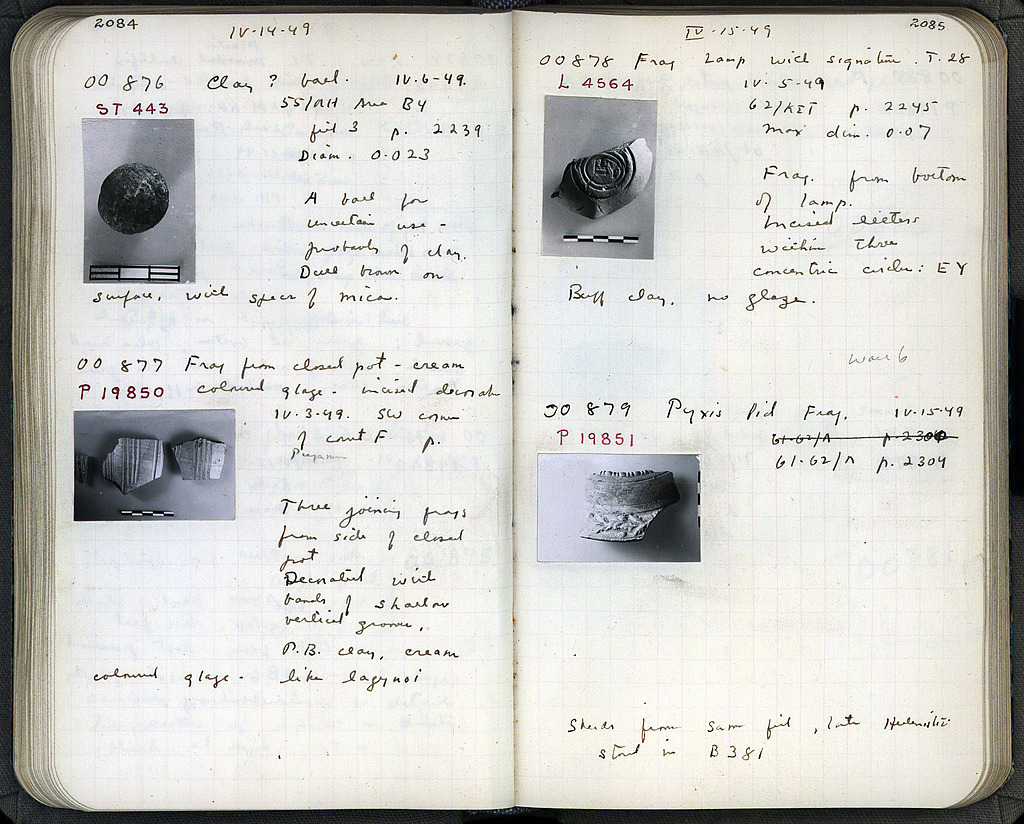 2084
IV-14-49
OO 876 Clay ? ball. IV-6-49.
ST 443
55/ΛΗ Area B4
fill 3 p. 2239
Diam. 0.023
A ball for
uncertain use -
probably of clay.
Dull brown on
surface, with specs of mica.
OO 877 Frag from closed pot - cream
P 19850 coloured glaze - incised decorat
IV-3-49. SW corner
of court F. p.
Three joining frags
from side of closed
pot
Decorated with
bands of shallow
vertical grooves.
P.B. clay, cream
coloured glaze - like lagynoi
2085
IV-15-49
OO 878 Frag Lamp with signature. T. 28
L 4564
IV-5-49
62/ΚΣΤ p. 2245
Max dim. 0.07
Frag. from bottom
of lamp.
Incised letters
within three
concentric circles: ΕΥ
Buff clay. no glaze.
OO 879 Pyxis Lid Frag. IV-15-49
P 19851
61-62/Λ p. 2300
61-62/Λ p. 2304
Sherds from same fill, late Hellenistic
stored in B 381